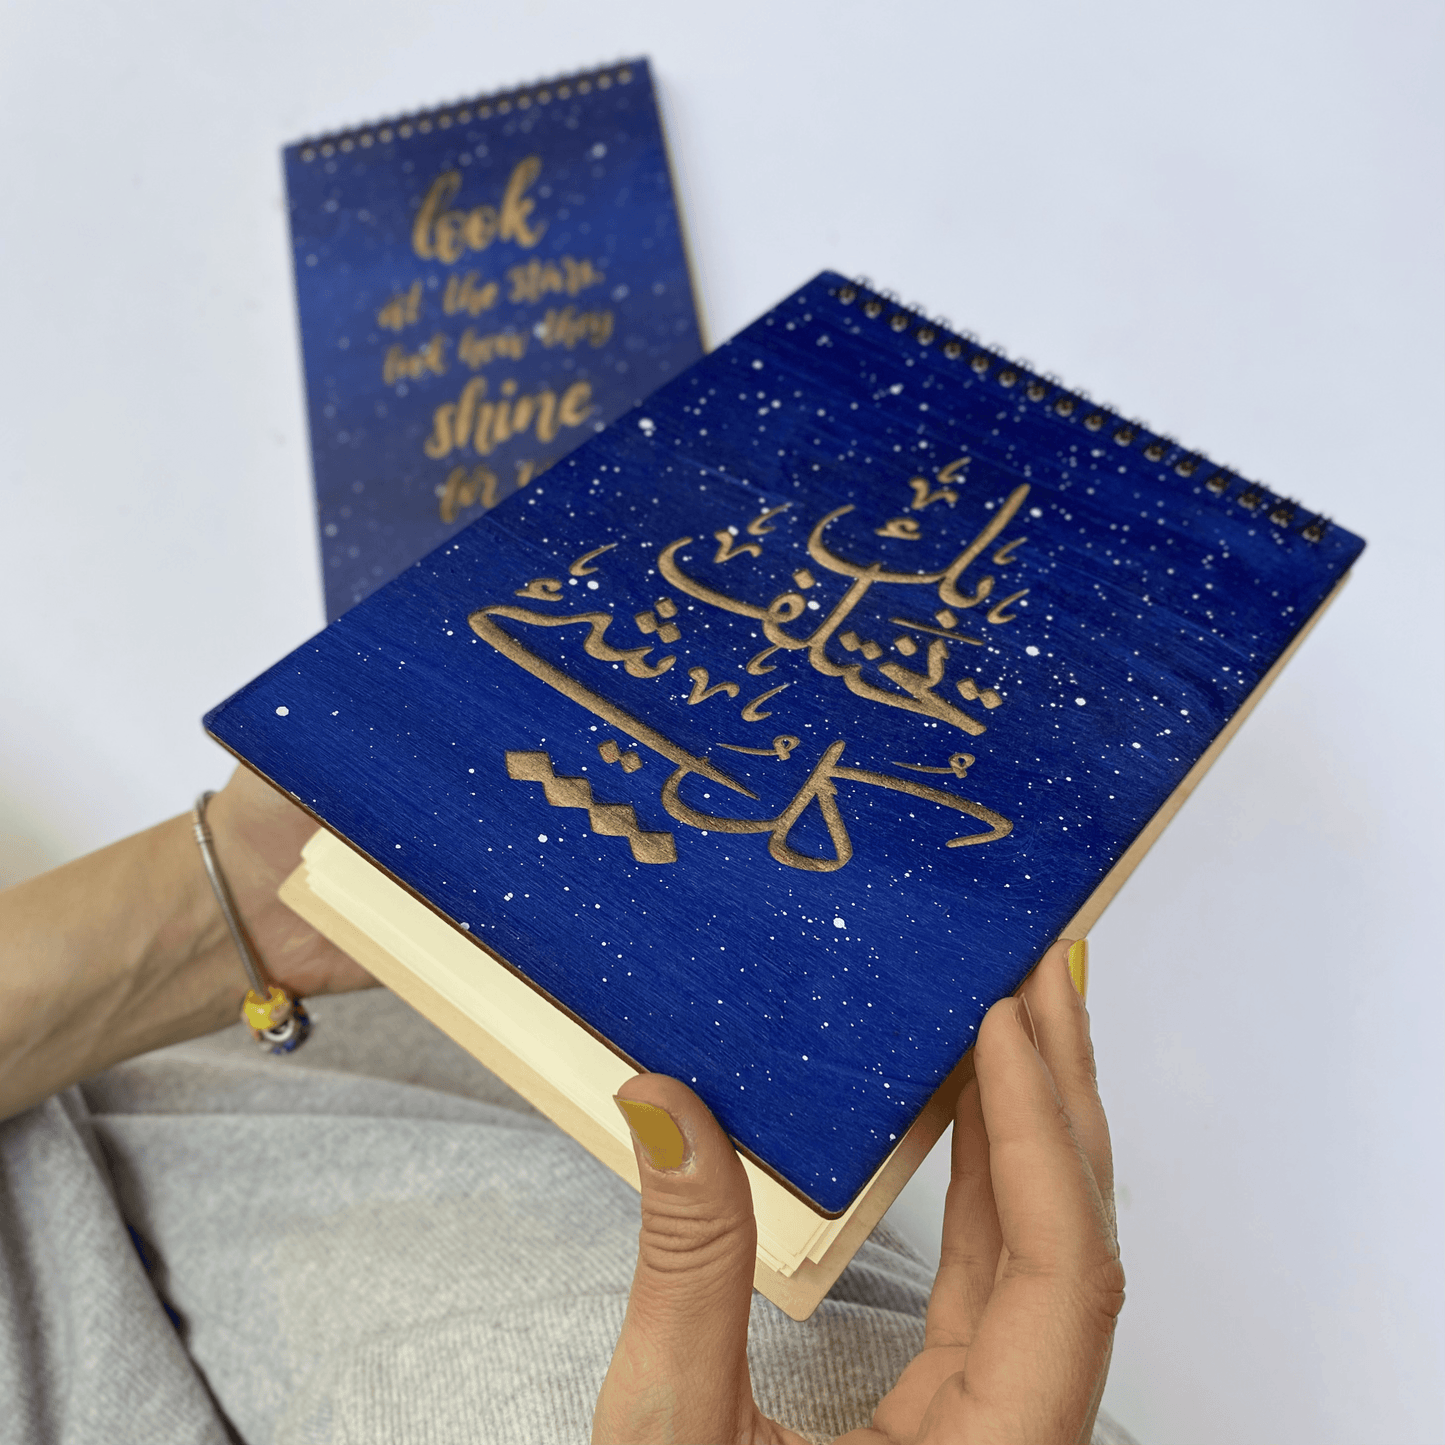 look
at the stars
look how they
shine
for
بك
تختلف
كل شيء